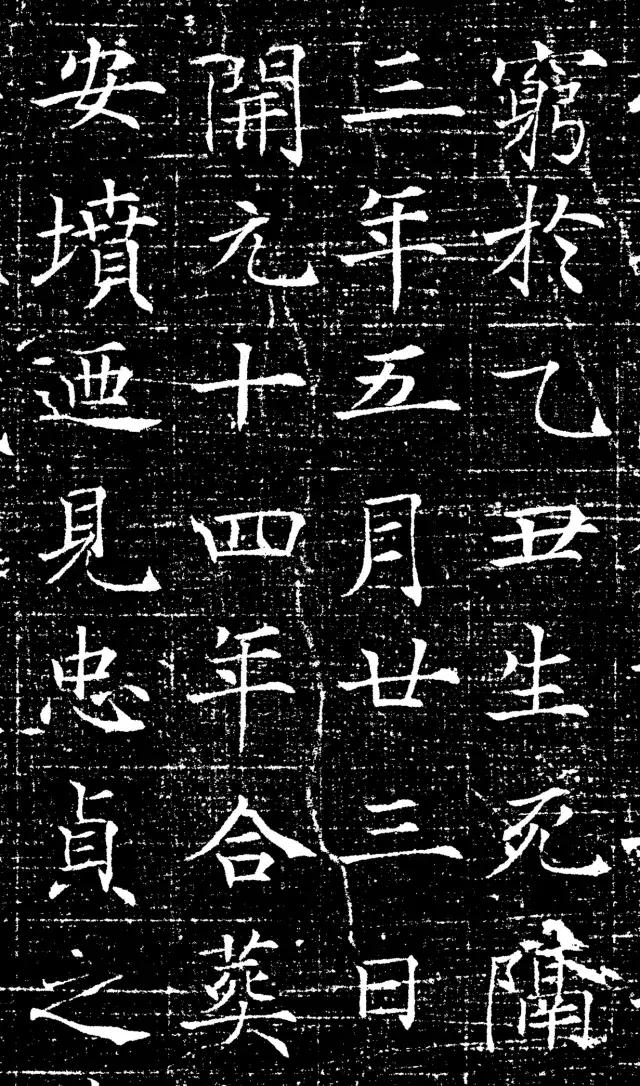 窮於乙丑生死隔
三年五月廿三日
開元十四年合葬
安墳迺見忠貞之